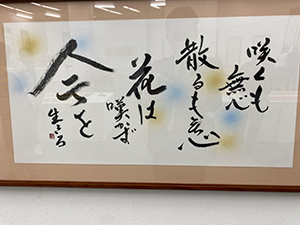 咲くも
無心
散るも無心
花は
嘆かず
今を
生きる